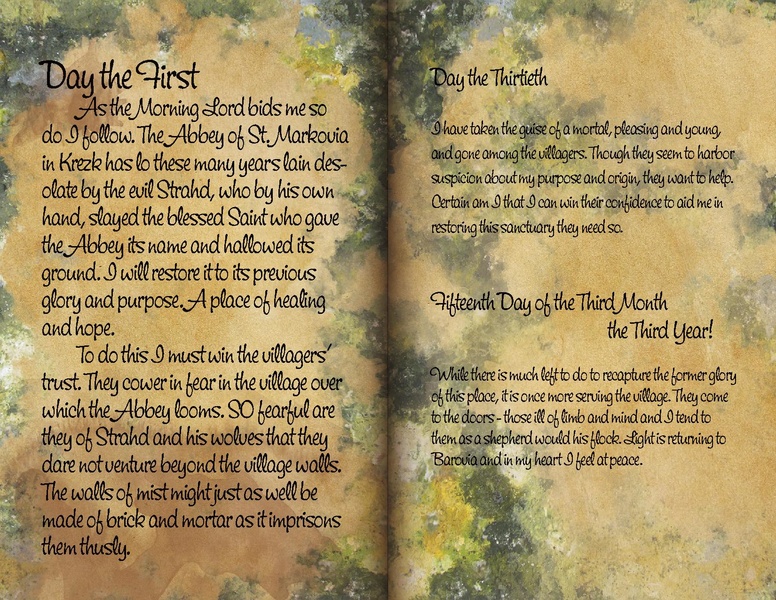 Day the First
As the Morning Lord bids me so
do I follow. The Abbey of St. Markovia
in Krezk has lo these many years lain des-
olate by the evil Strahd, who by his own
hand, slayed the blessed Saint who gave
the Abbey its name and hallowed its
ground. I will restore it to its previous
glory and purpose. A place of healing
and hope.
To do this I must win the villagers'
trust. They cower in fear in the village over
which the Abbey looms. SO fearful are
they of Strahd and his wolves that they
dare not venture beyond the village walls.
The walls of mist might just as well be
made of brick and mortar as it imprisons
them thusly.
Day the Thirtieth
I have taken the guise of a mortal, pleasing and young,
and gone among the villagers. Though they seem to harbor
suspicion about my purpose and origin, they want to help.
Certain am I that I can win their confidence to aid me in
restoring this sanctuary they need so.
Fifteenth Day of the Third Month
the Third Year!
While there is much left to do to recapture the former glory
of this place, it is once more serving the village. They come
to the doors - those ill of limb and mind and I tend to
them as a shepherd would his flock. Light is returning to
Barovia and in my heart I feel at peace.